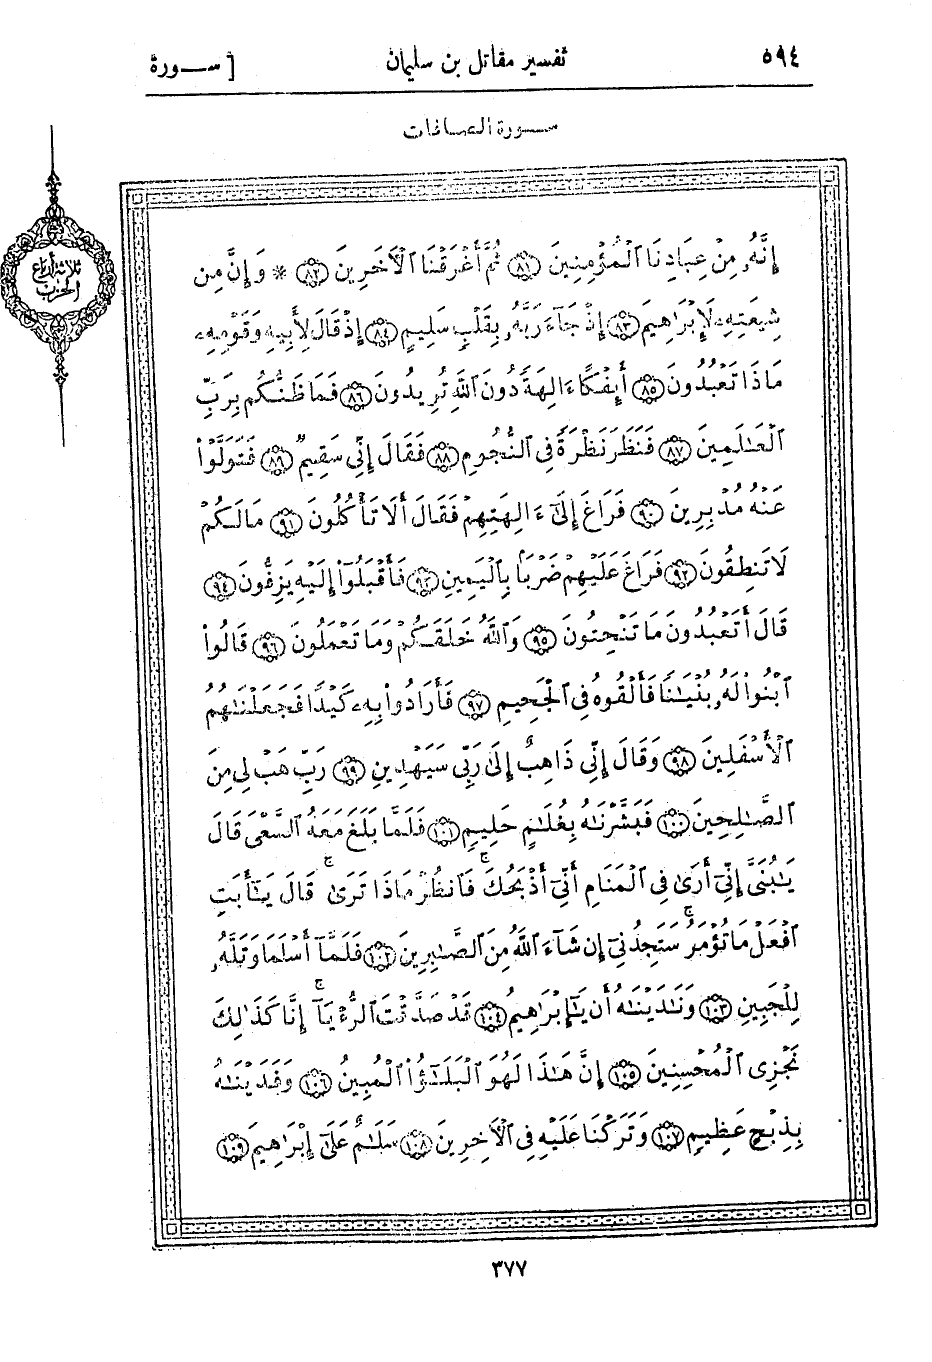 ٥٩٤ تفسير مقاتل بن سليمان [ ســـورة
ســـورة الصافات
ثلاثة أرباع
الحزب
إِنَّهُۥ مِنْ عِبَادِنَا ٱلْمُؤْمِنِينَ ٨١ ثُمَّ أَغْرَقْنَا ٱلْآخَرِينَ ٨٢ * وَإِنَّ مِن
شِيعَتِهِۦ لَإِبْرَٰهِيمَ ٨٣ إِذْ جَآءَ رَبَّهُۥ بِقَلْبٍ سَلِيمٍ ٨٤ إِذْ قَالَ لِأَبِيهِ وَقَوْمِهِۦ
مَاذَا تَعْبُدُونَ ٨٥ أَئِفْكًا ءَالِهَةً دُونَ ٱللَّهِ تُرِيدُونَ ٨٦ فَمَا ظَنُّكُم بِرَبِّ
ٱلْعَٰلَمِينَ ٨٧ فَنَظَرَ نَظْرَةً فِى ٱلنُّجُومِ ٨٨ فَقَالَ إِنِّى سَقِيمٌ ٨٩ فَتَوَلَّوْا۟
عَنْهُ مُدْبِرِينَ ٩٠ فَرَاغَ إِلَىٰٓ ءَالِهَتِهِمْ فَقَالَ أَلَا تَأْكُلُونَ ٩١ مَا لَكُمْ
لَا تَنطِقُونَ ٩٢ فَرَاغَ عَلَيْهِمْ ضَرْبًۢا بِٱلْيَمِينِ ٩٣ فَأَقْبَلُوٓا۟ إِلَيْهِ يَزِفُّونَ ٩٤
قَالَ أَتَعْبُدُونَ مَا تَنْحِتُونَ ٩٥ وَٱللَّهُ خَلَقَكُمْ وَمَا تَعْمَلُونَ ٩٦ قَالُوا۟
ٱبْنُوا۟ لَهُۥ بُنْيَٰنًا فَأَلْقُوهُ فِى ٱلْجَحِيمِ ٩٧ فَأَرَادُوا۟ بِهِۦ كَيْدًا فَجَعَلْنَٰهُمُ
ٱلْأَسْفَلِينَ ٩٨ وَقَالَ إِنِّى ذَاهِبٌ إِلَىٰ رَبِّى سَيَهْدِينِ ٩٩ رَبِّ هَبْ لِى مِنَ
ٱلصَّٰلِحِينَ ١٠٠ فَبَشَّرْنَٰهُ بِغُلَٰمٍ حَلِيمٍ ١٠١ فَلَمَّا بَلَغَ مَعَهُ ٱلسَّعْىَ قَالَ
يَٰبُنَىَّ إِنِّىٓ أَرَىٰ فِى ٱلْمَنَامِ أَنِّىٓ أَذْبَحُكَ فَٱنظُرْ مَاذَا تَرَىٰ ۚ قَالَ يَٰٓأَبَتِ
ٱفْعَلْ مَا تُؤْمَرُ ۖ سَتَجِدُنِىٓ إِن شَآءَ ٱللَّهُ مِنَ ٱلصَّٰبِرِينَ ١٠٢ فَلَمَّآ أَسْلَمَا وَتَلَّهُۥ
لِلْجَبِينِ ١٠٣ وَنَٰدَيْنَٰهُ أَن يَٰٓإِبْرَٰهِيمُ ١٠٤ قَدْ صَدَّقْتَ ٱلرُّءْيَآ ۚ إِنَّا كَذَٰلِكَ
نَجْزِى ٱلْمُحْسِنِينَ ١٠٥ إِنَّ هَٰذَا لَهُوَ ٱلْبَلَٰٓؤُا۟ ٱلْمُبِينُ ١٠٦ وَفَدَيْنَٰهُ
بِذِبْحٍ عَظِيمٍ ١٠٧ وَتَرَكْنَا عَلَيْهِ فِى ٱلْآخِرِينَ ١٠٨ سَلَٰمٌ عَلَىٰٓ إِبْرَٰهِيمَ ١٠٩
٣٧٧